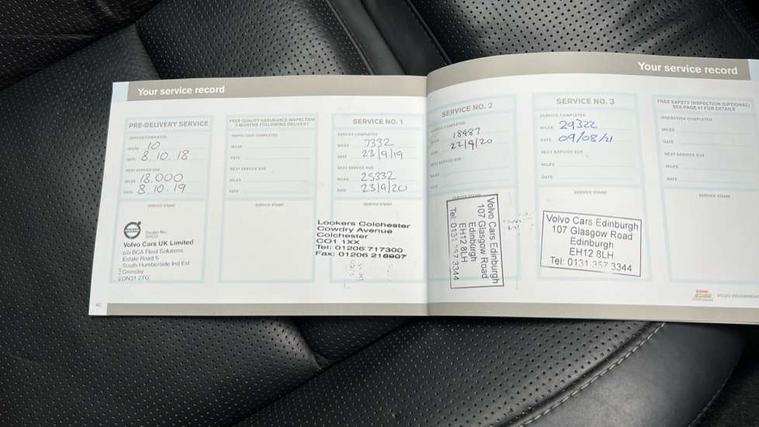 Your service record
PRE-DELIVERY SERVICE
SERVICE COMPLETED
MILES 10
DATE 8.10.18
NEXT SERVICE DUE
MILES 18.000
DATE 8.10.19
SERVICE STAMP
Volvo Cars UK Limited
c/o BCA Fleet Solutions
Estate Road 5
South Humberside Ind Est
Grimsby
DN31 2TG
FREE QUALITY ASSURANCE INSPECTION
3 MONTHS FOLLOWING DELIVERY
INSPECTION COMPLETED
MILES
DATE
NEXT SERVICE DUE
MILES
DATE
SERVICE STAMP
SERVICE NO. 1
SERVICE COMPLETED
MILES 7332
DATE 23/9/19
NEXT SERVICE DUE
MILES 25332
DATE 23/9/20
SERVICE STAMP
Lookers Colchester
Cowdry Avenue
Colchester
CO1 1XX
Tel: 01206 717300
Fax: 01206 216907
Your service record
SERVICE NO. 2
SERVICE COMPLETED
MILES 18487
DATE 22/9/20
NEXT SERVICE DUE
MILES
DATE
Volvo Cars Edinburgh
107 Glasgow Road
Edinburgh
EH12 8LH
Tel: 0131 357 3344
SERVICE NO. 3
SERVICE COMPLETED
MILES 29322
DATE 09/08/21
NEXT SERVICE DUE
MILES
DATE
SERVICE STAMP
Volvo Cars Edinburgh
107 Glasgow Road
Edinburgh
EH12 8LH
Tel: 0131 357 3344
FREE SAFETY INSPECTION (OPTIONAL)
SEE PAGE 41 FOR DETAILS
INSPECTION COMPLETED
MILES
DATE
NEXT SERVICE DUE
MILES
DATE
SERVICE STAMP